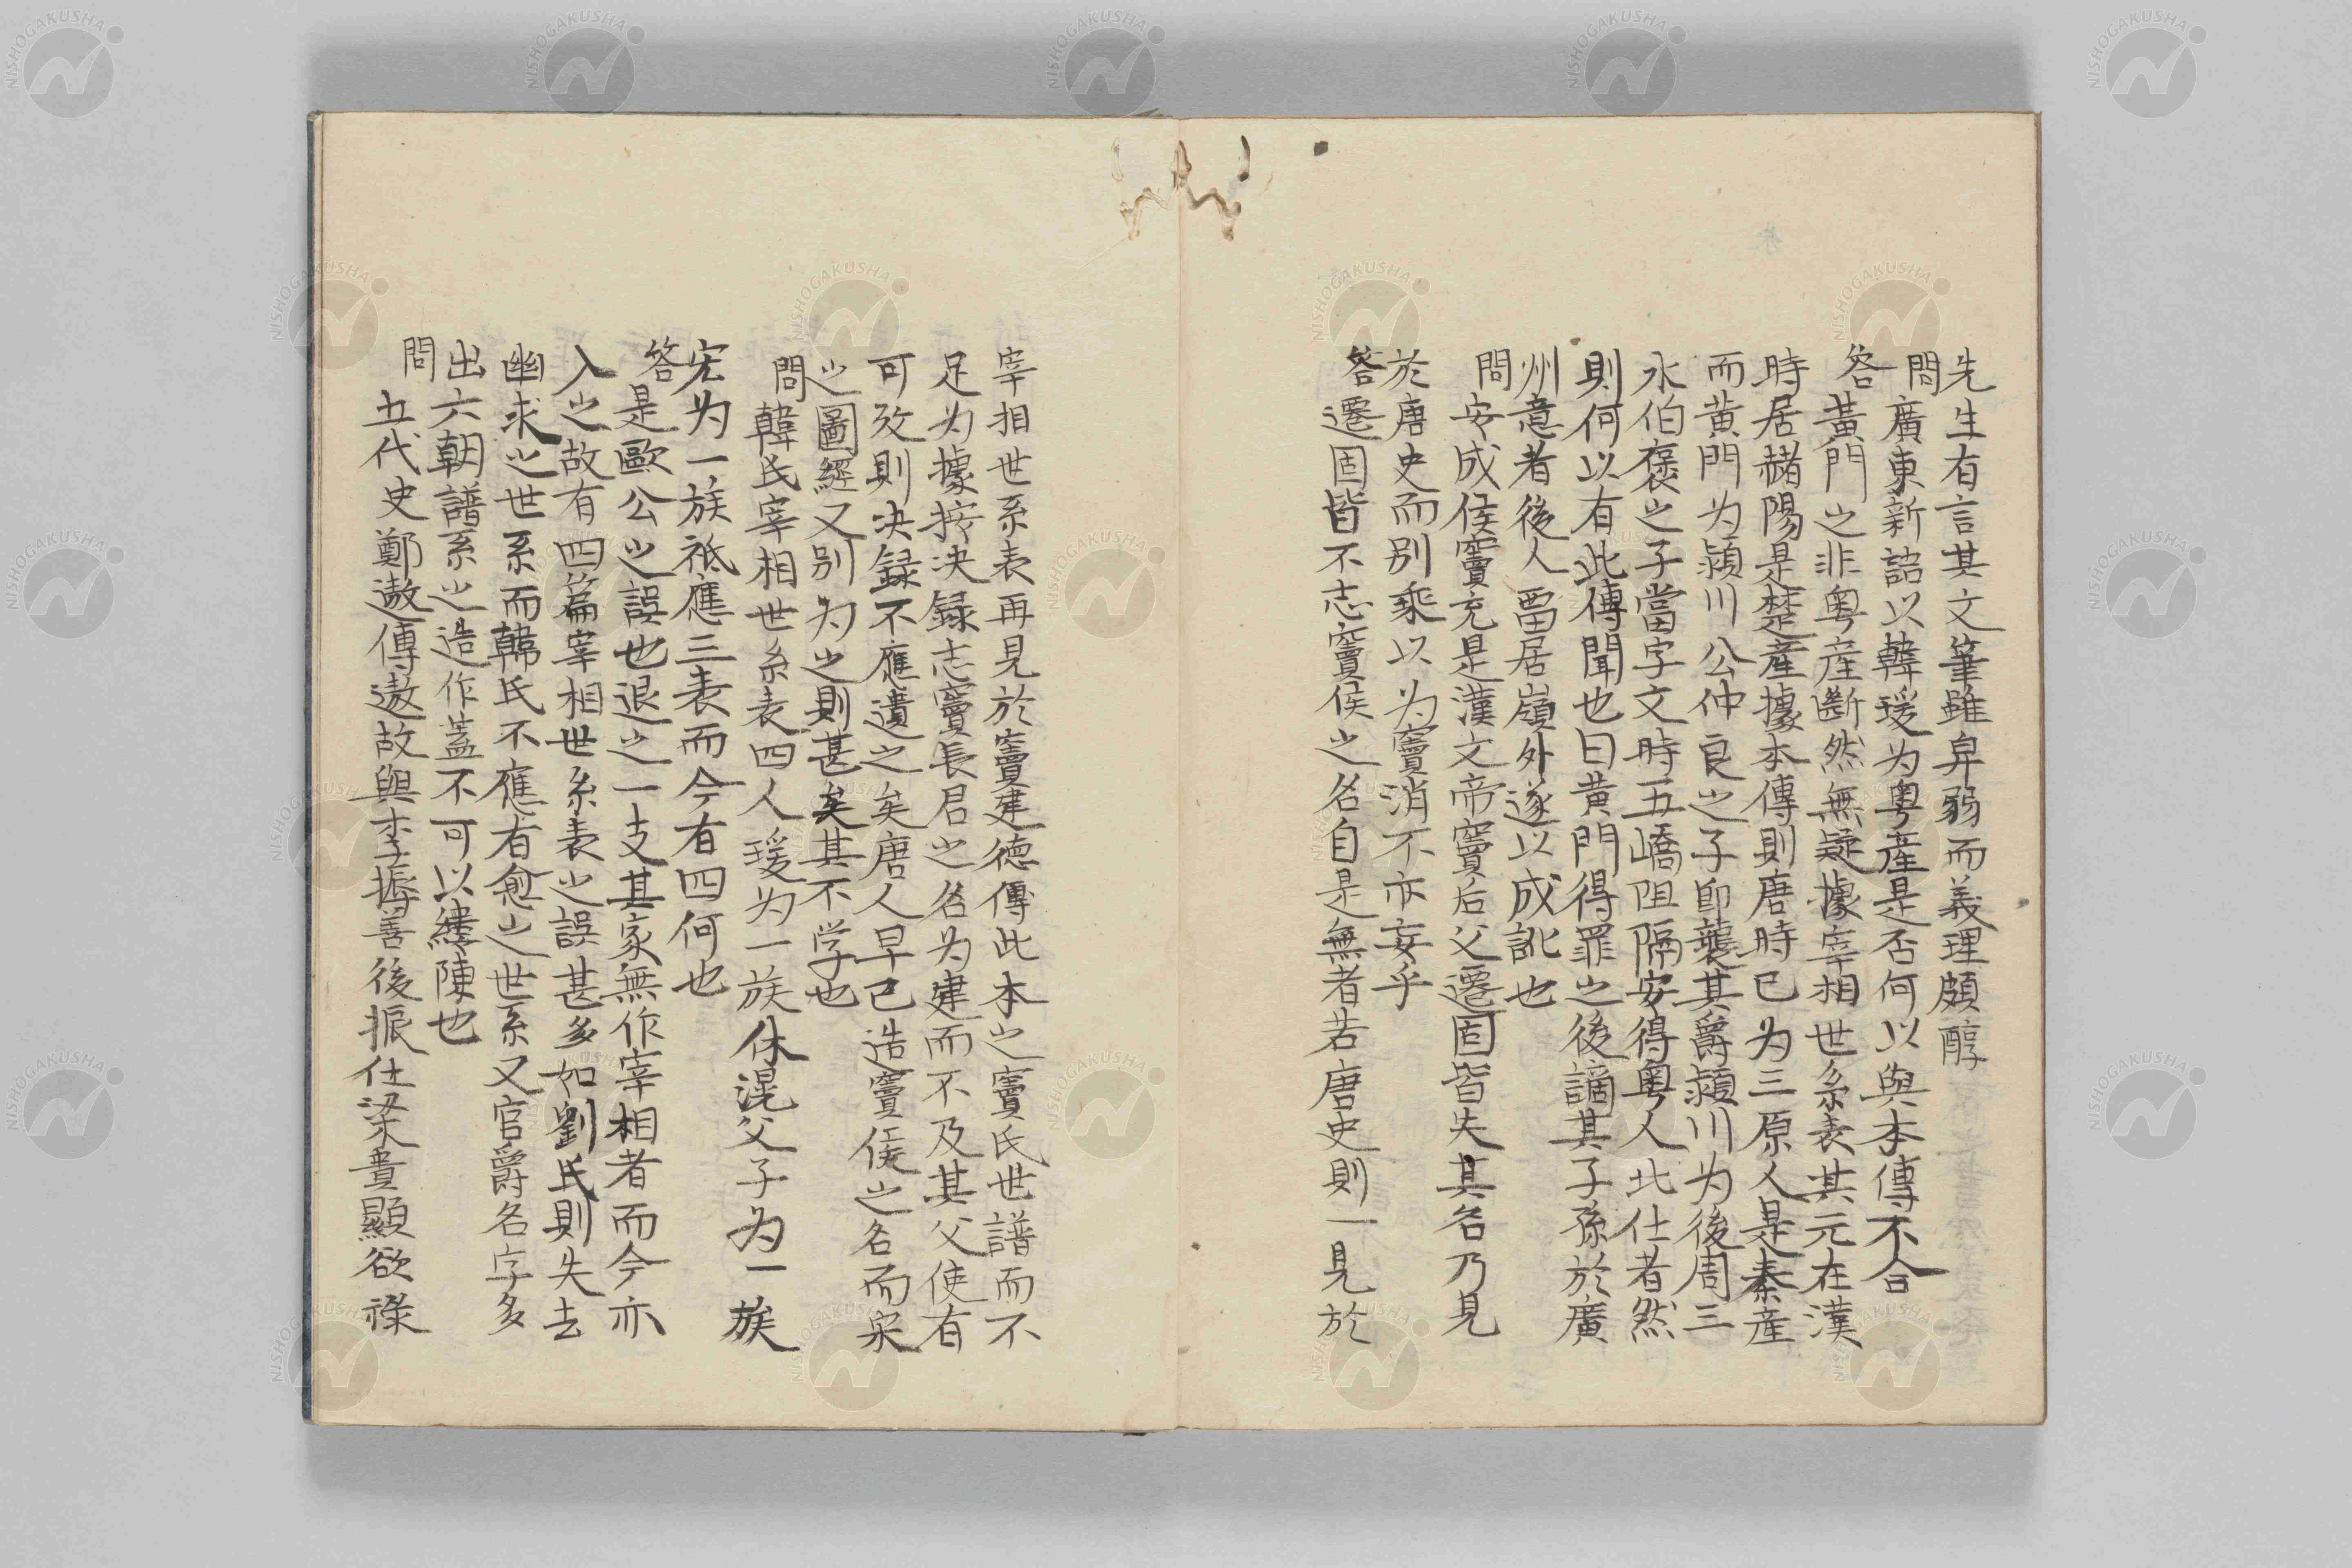 先生有言其文筆雖卑弱而義理頗醇
問廣東新語以韓瑗为粤産是否何以與本傳不合
答黃門之非粤産斷然無疑據宰相世系表其元在漢
時居赭陽是楚産據本傳則唐時已为三原人是秦産
而黃門为潁川公仲良之子即襲其爵潁川为後周三
水伯褒之子當字文時五嶠阻隔安得粤人北仕者然
則何以有此傳聞也曰黃門得罪之後謫其子孫於廣
州意者後人畱居嶺外遂以成訛也
問安成侯竇充是漢文帝竇后父遷固皆失其名乃見
於唐史而别乘以为竇消不亦妄乎
答遷固皆不志竇侯之名自是無者若唐史則一見於
宰相世系表再見於竇建德傳此本之竇氏世譜而不
足为據按决録志竇長君之名为建而不及其父使有
可攷則决録不應遺之矣唐人早已造竇侯之名而宋
之圖經又别为之則甚矣其不学也
問韓氏宰相世系表四人瑗为一族休滉父子为一族
宏为一族祗應三表而今有四何也
答是歐公之誤也退之一支其家無作宰相者而今亦
入之故有四篇宰相世系表之誤甚多如劉氏則失去
幽求之世系而韓氏不應有愈之世系又官爵名字多
出六朝譜系之造作蓋不可以縷陳也
問五代史鄭遨傳遨故與李振善後振仕梁貴顯欲祿